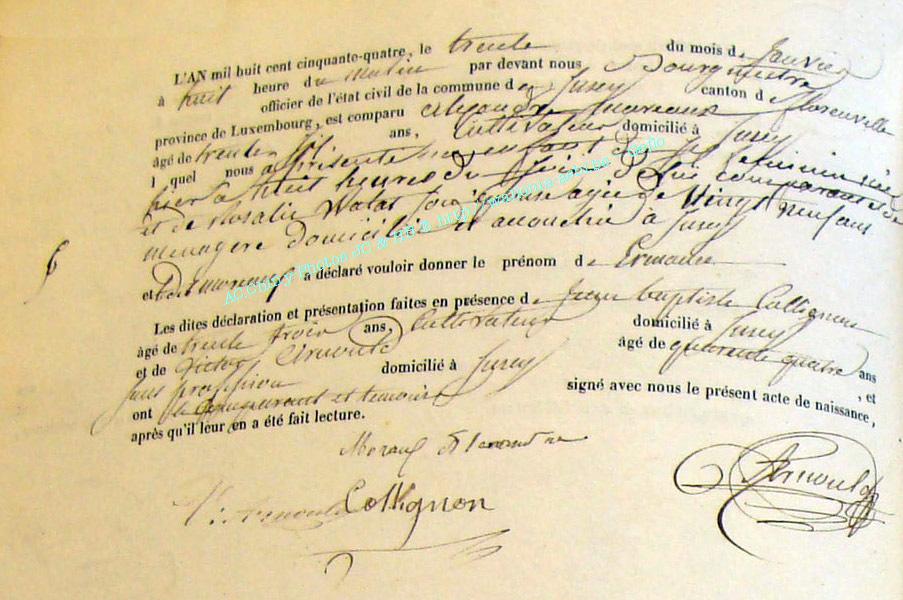 L'AN mil huit cent cinquante-quatre, le trente du mois de Janvier
à huit heure du matin par devant nous Bourgmestre
officier de l'état civil de la commune de Jurey canton de Florenville
province de Luxembourg, est comparu Alexandre Moreaux
âgé de trente ans, Cultivateur domicilié à Jurey
l quel nous a présenté un enfant du féminin née
hier à huit heures du de lui comparant
et de Rosalie son épouse agée de Vingt neuf ans
menagère domiciliée et accouchée à Jurey
et a déclaré vouloir donner le prénom d
Les dites déclaration et présentation faites en présence de Jean Baptiste Collignon
âgé de trente trois ans, Cultivateur domicilié à Jurey
et de Victor Arnould âgé de quarante quatre ans
sans profession domicilié à Jurey , et
ont le comparant et temoins signé avec nous le présent acte de naissance,
après qu'il leur en a été fait lecture.
Collignon
V: Arnould
Arnould